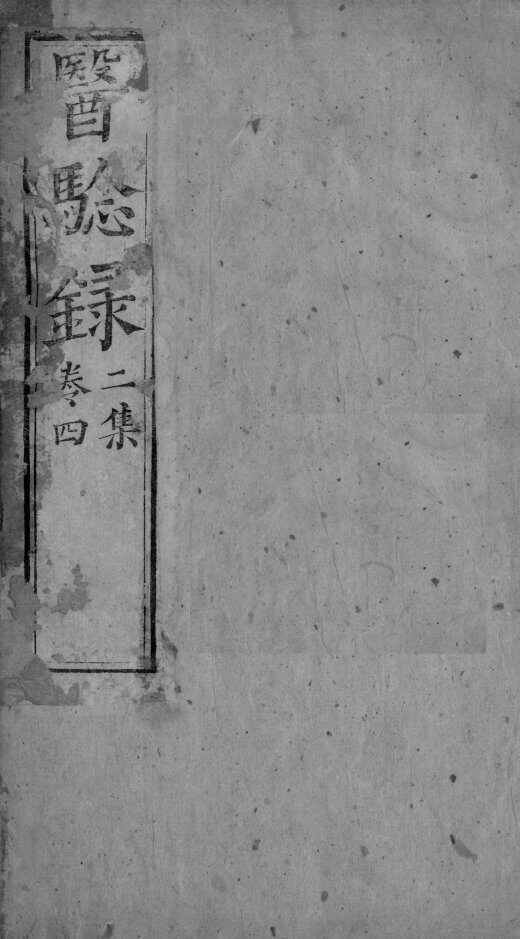 醫騐録
二集
卷四